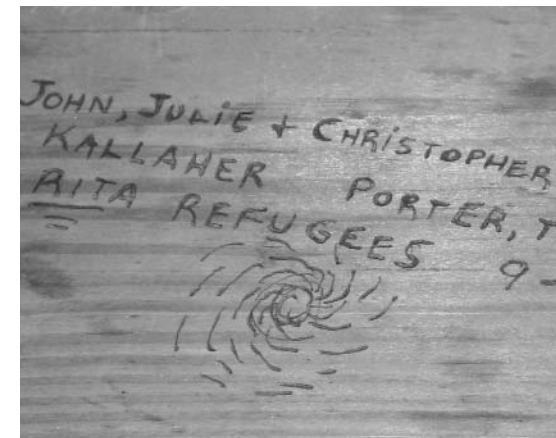 JOHN, JULIE + CHRISTOPHER
KALLAHER PORTER, T
RITA REFUGEES 9-